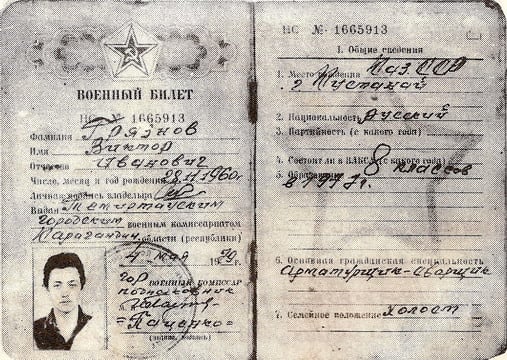 ВОЕННЫЙ БИЛЕТ
НС № 1665913
Фамилия Грязнов
Имя Виктор
Отчество Иванович
Число, месяц и год рождения 28.11.1960г.
Личная подпись владельца
Выдан Темиртауским
городским военным комиссариатом
Карагандин. области (республики)
4 мая 1979г.
гор ВОЕННЫЙ КОМИССАР
подполковник
М. П.
=Паценко=
(подпись, фамилия)
НС № 1665913
I. Общие сведения
1. Место рождения Каз. ССР
г Кустанай
2. Национальность русский
3. Партийность (с какого года)
4. Состоит ли в ВЛКСМ (с какого года)
5. Образование 8 классов
в 1977 г.
6. Основная гражданская специальность
Арматурщик-сварщик
7. Семейное положение холост